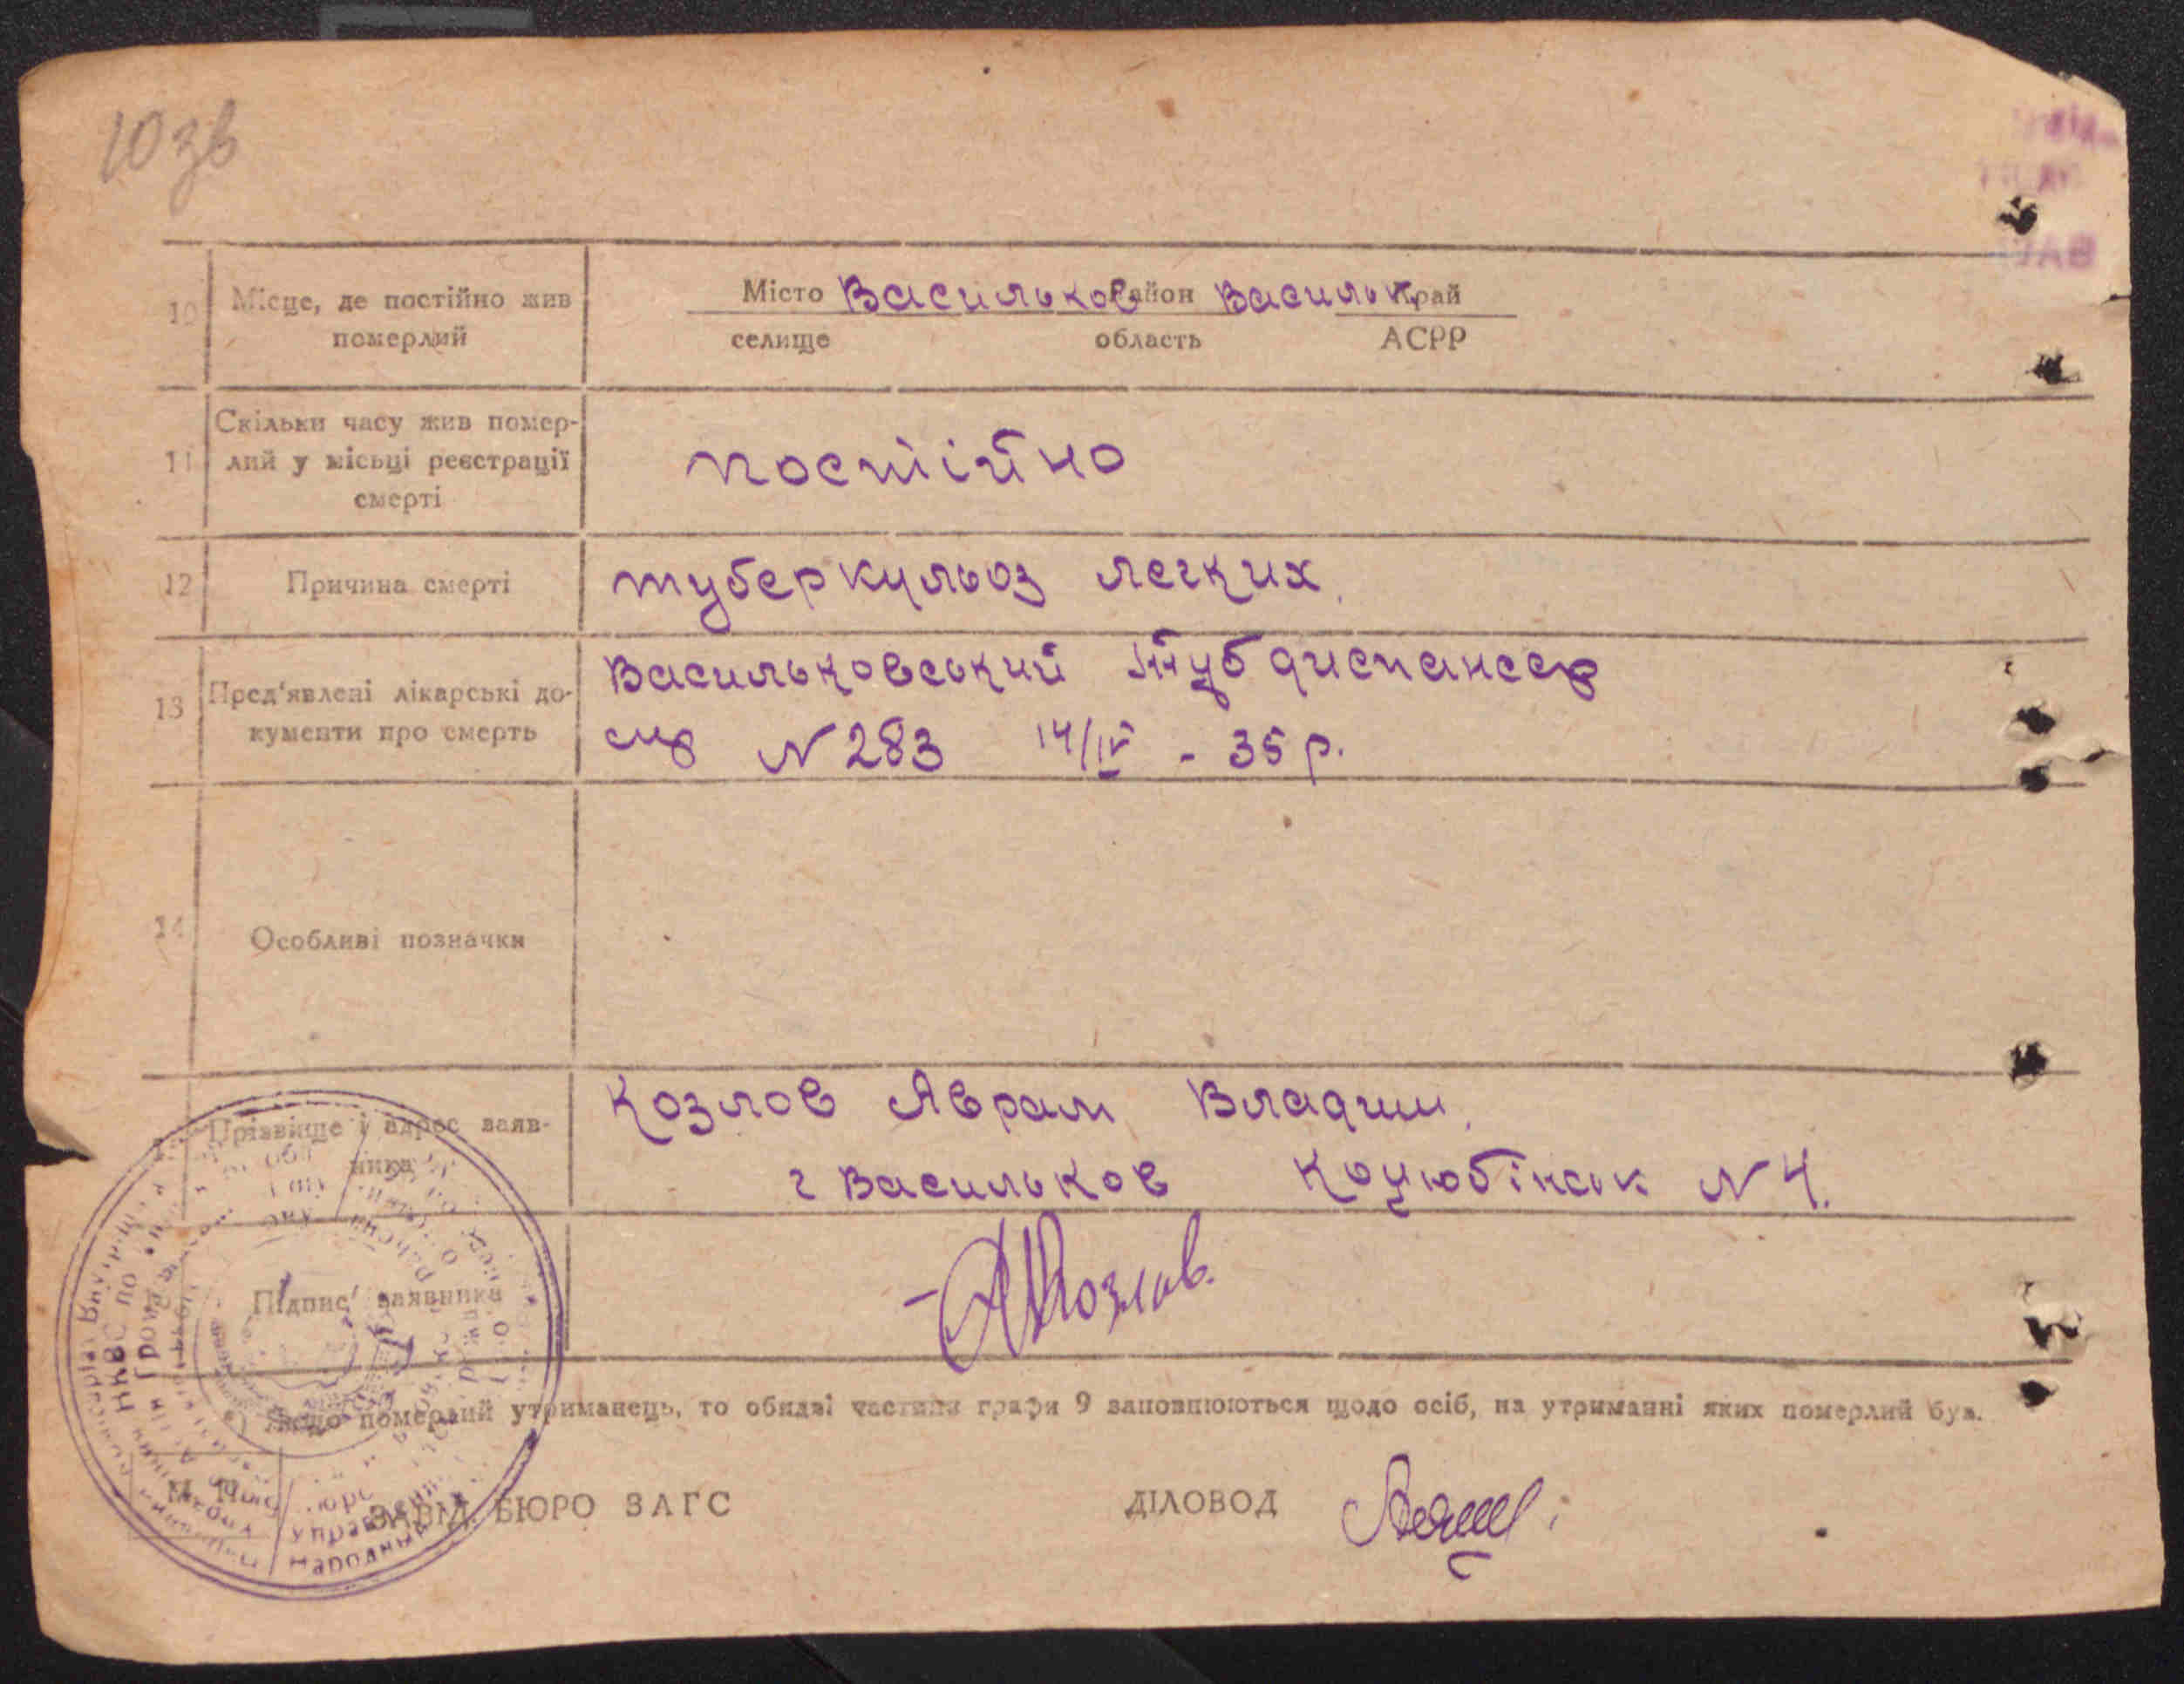 10 зв
10 Місце, де постійно жив померлий
Місто Васильков Район Васильк. Край
селище область АСРР
11 Скільки часу жив помер-
лий у місьці реєстрації
смерті
постійно
12 Причина смерті туберкульоз легких.
13 Пред'явлені лікарські до-
кументи про смерть
Васильковський Тубдиспансер
N 283 14/IV - 35 р.
14 Особливі позначки
Прізвище і адрес заяв-
ника
Козлов Аврам Владим.
г Васильков Коцюбінськ N 4.
Підпис заявника АКозлов.
*) Якщо померлий утриманець, то обидві частини графи 9 заповнюються щодо осіб, на утриманні яких померлий був.
М. П. ЗАВІД. БЮРО ЗАГС ДІЛОВОД
НКВС по
Управления
Народный